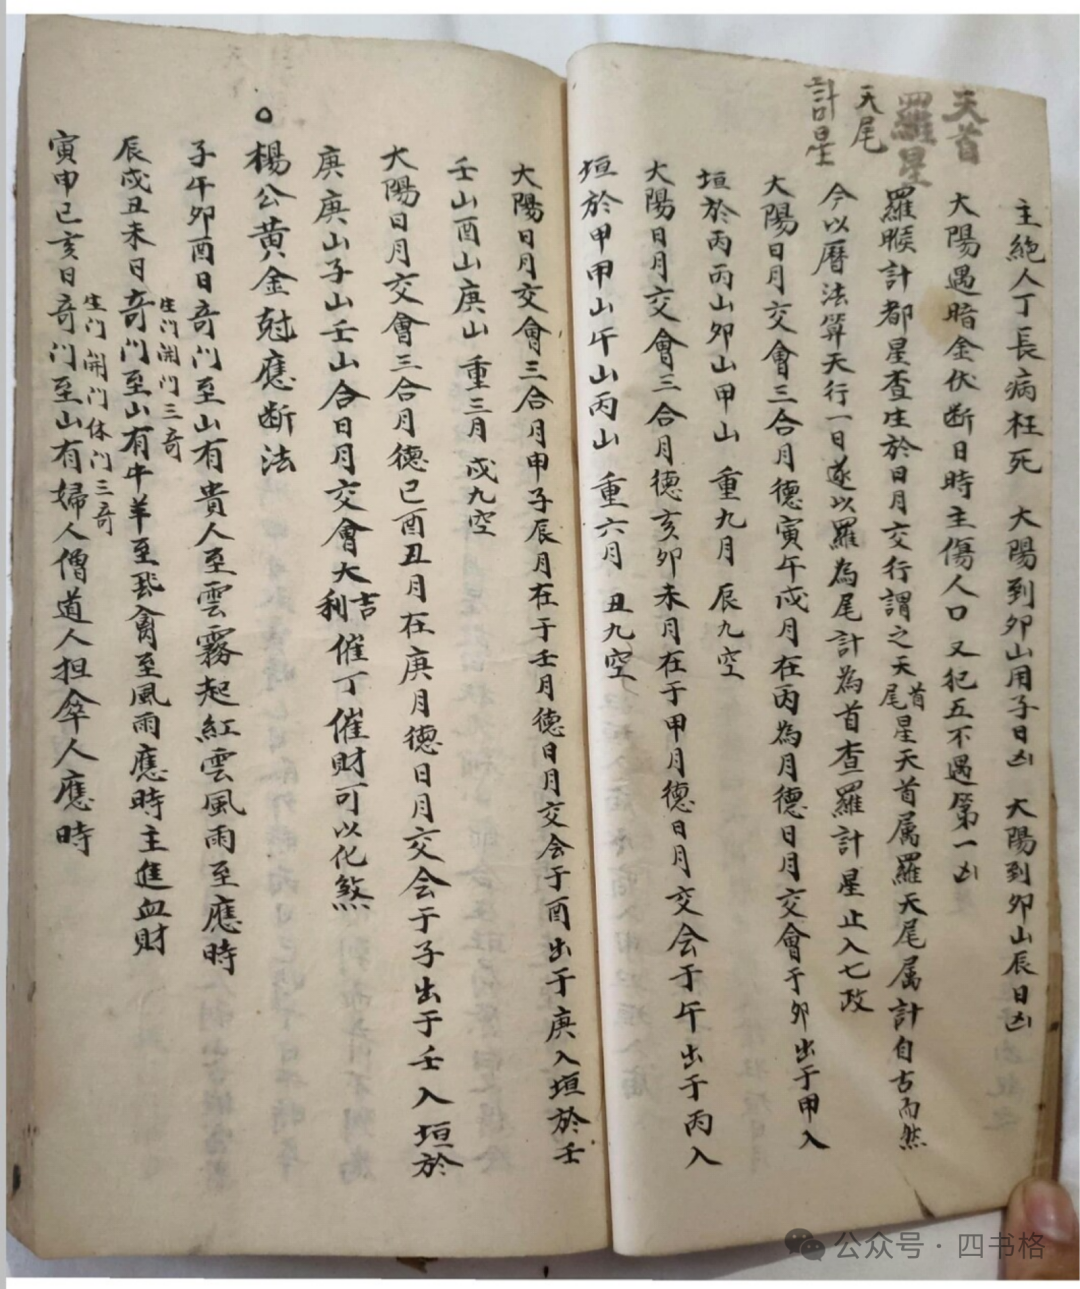 天首
羅星
天尾
計星
主絶人丁長病枉死 大陽到夘山用子日凶 大陽到夘山辰日凶
大陽遇暗金伏断日時主傷人口 又犯五不遇第一凶
羅睺計都星查生於日月交行謂之天首尾星天首属羅天尾属計自古而然
今以曆法算天行一日遂以羅為尾計為首查羅計星止入七政
大陽日月交會三合月德寅午戌月在丙為月德日月交會于夘出于甲入
垣於丙丙山夘山甲山 重九月 辰九空
大陽日月交會三合月德亥夘未月在于甲月德日月交会于午出于丙入
垣於甲甲山午山丙山 重六月 丑九空
大陽日月交會三合月申子辰月在于壬月德日月交会于酉出于庚入垣於壬
壬山酉山庚山 重三月 戌九空
大陽日月交會三合月德巳酉丑月在庚月德日月交会于子出于壬入垣於
庚庚山子山壬山合日月交會大吉利催丁催財可以化煞
○楊公黄金尅應断法
子午卯酉日奇门至山有貴人至雲霧起紅雲風雨至應時
生门開门三奇
辰戌丑未日奇门至山有牛羊至飛禽至風雨應時主進血財
生门開门休门三奇
寅申巳亥日奇门至山有婦人僧道人担傘人應時
公众号 · 四书格